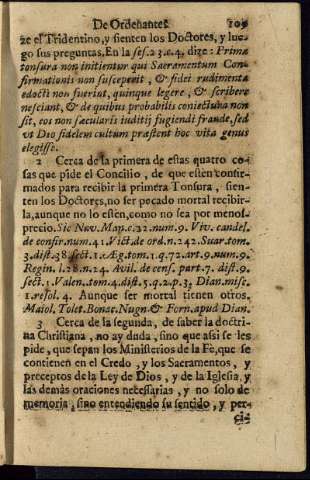 De Ordenantes. 109
ze el Tridentino, y sienten los Doctores, y lue-
go sus preguntas. En la ses. 23. c. 4. dize: Prima
tonsura non initientur qui Sacramentum Con-
firmationis non susceperit, & fidei rudimenta
edocti non fuerint, quinque legere, & scribere
nesciant, & de quibus probabilis coniectura non
sit, eos non sæcularis iuditij fugiendi fraude, sed
vt Deo fidelem cultum præstent hoc vitæ genus
elegisse.
2 Cerca de la primera de estas quatro co-
sas que pide el Concilio, de que estèn confir-
mados para recibir la primera Tonsura, sien-
ten los Doctores, no ser pecado mortal recibir-
la, aunque no lo estèn, como no sea por menos-
precio. Sic Nav. Man. c. 22. num. 9. Viv. candel.
de confir. num. 41. Vict. de ord. n. 242. Suar. tom.
3. dist. 38. sect. 1. Æg. tom. 1. q. 72. art. 9. num. 9.
Regin. l. 28. n. 24. Avil. de cens. part. 7. disp. 9.
sect. 1. Valen. tom. 4. dist. 5. q. 2. p. 3. Dian. misc.
1. resol. 4. Aunque ser mortal tienen otros,
Maiol. Tolet. Bonac. Nugn. & Forn. apud Dian.
3 Cerca de la segunda, de saber la doctri-
na Christiana, no ay duda, sino que assi se les
pide, que sepan los Ministerios de la Fè, que se
contienen en el Credo, y los Sacramentos, y
preceptos de la Ley de Dios, y de la Iglesia, y
las demàs oraciones necessarias, y no solo de
memoria, sino entendiendo su sentido, y per-
ci-